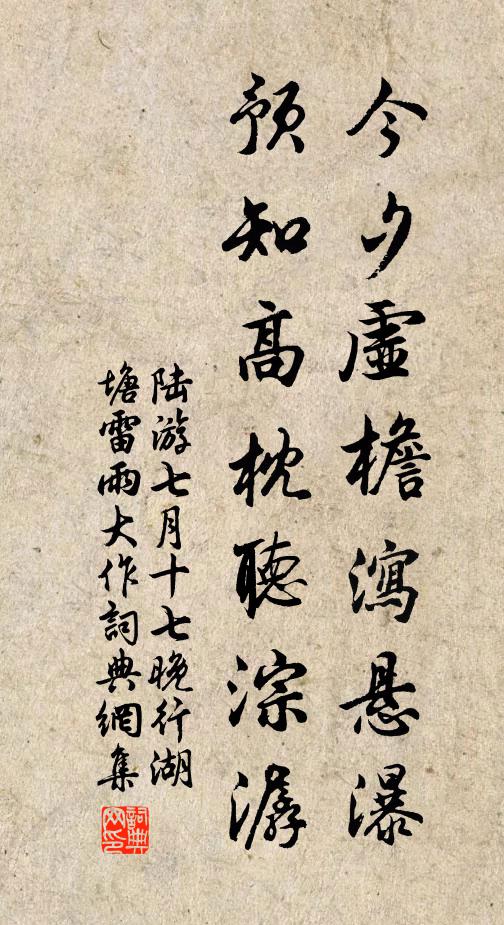 今夕虛檐瀉悬瀑
预知高枕聽淙潺
陆游七月十七晚行湖
塘雷雨大作詞典網集
詞典网印